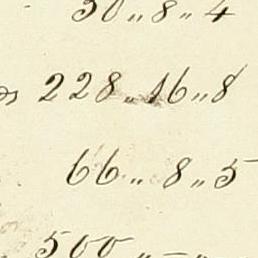 30 " 8 " 4
228 " 16 " 8
66 " 8 " 5
500 " – "